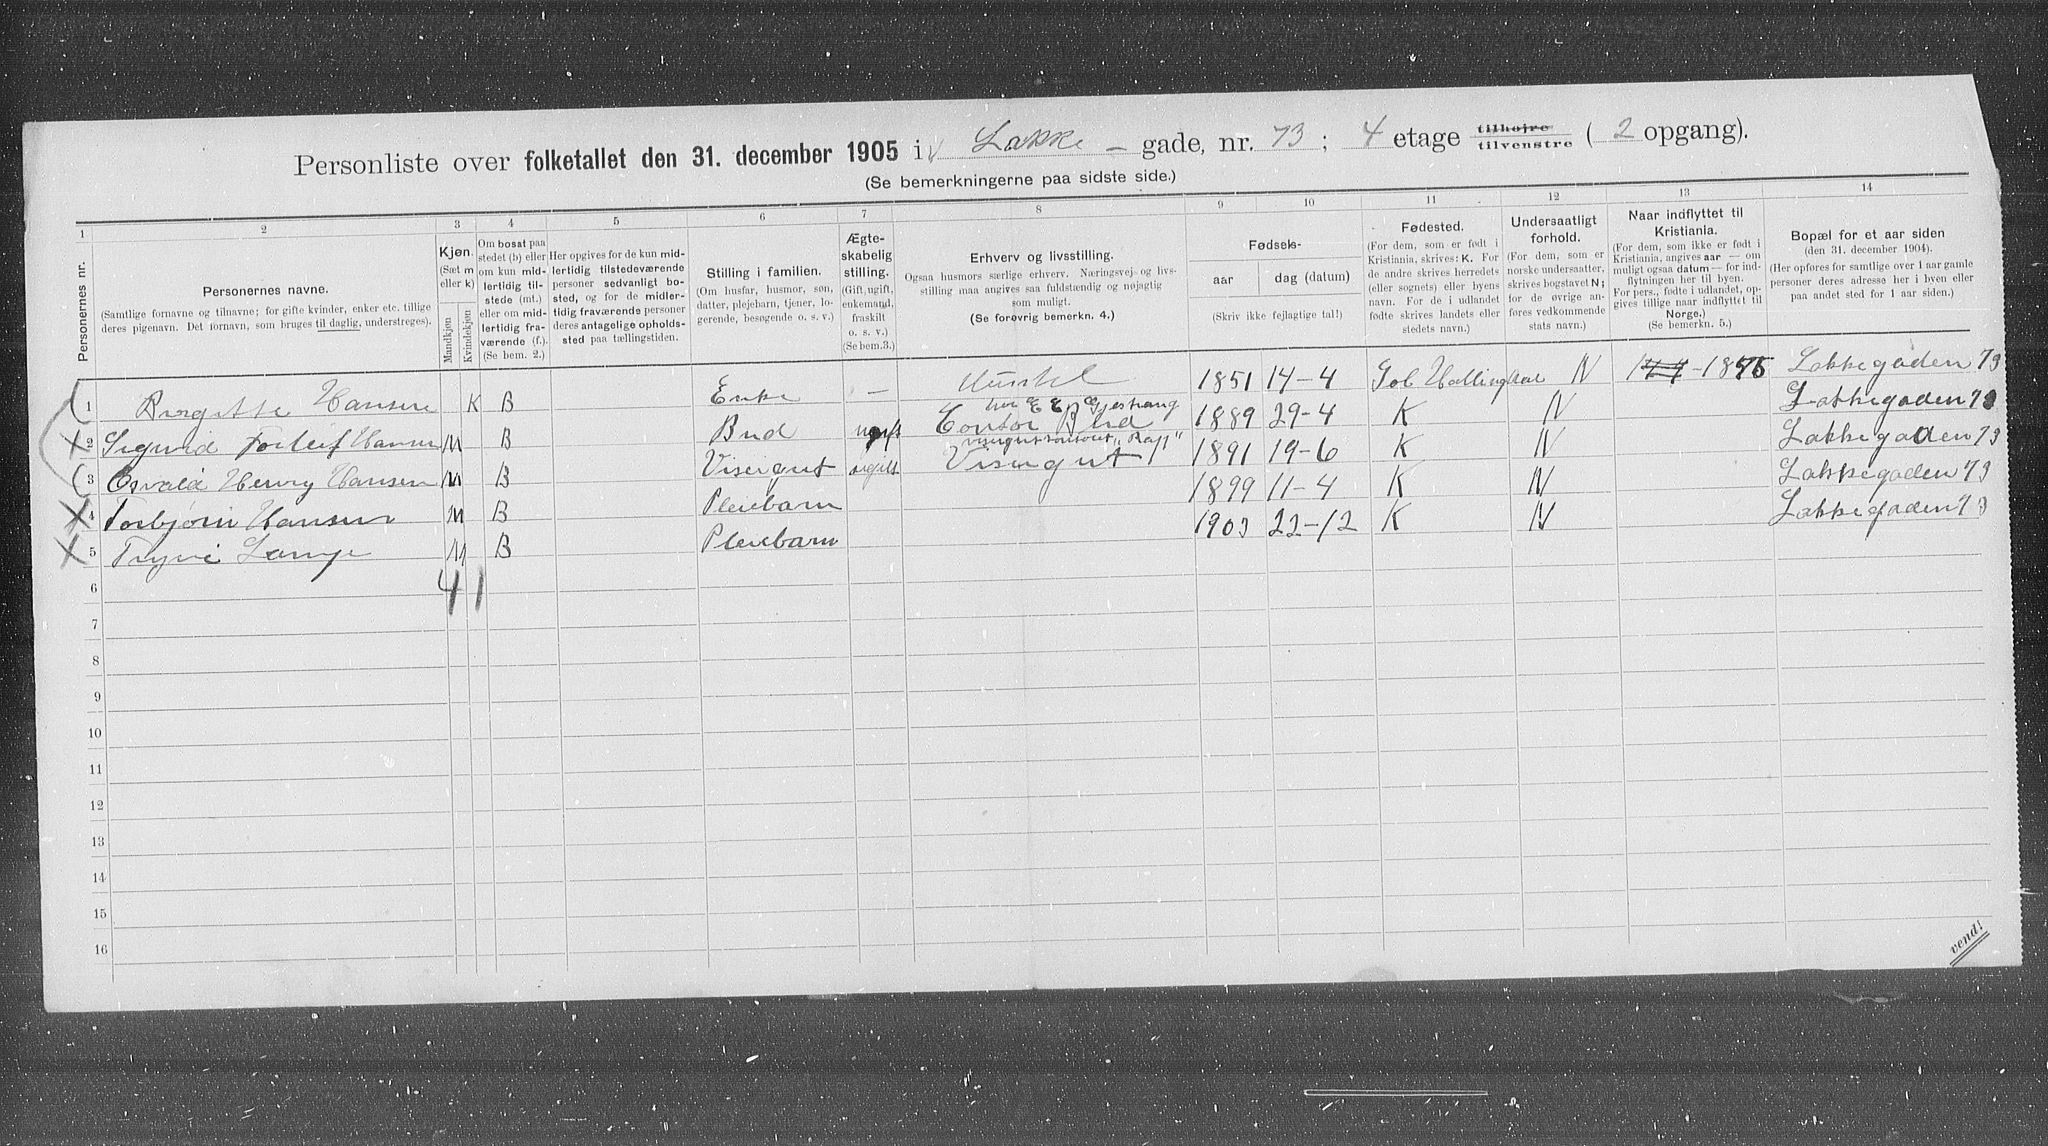 Personliste over folketallet den 31. december 1905 i Lakke - gade, nr. 73; 4 etage tilhøjre tilvenstre (2 opgang).
(Se bemerkningerne paa sidste side.)
1 2 3 4 5 6 7 8 9 10 11 12 13 14
Personernes nr.
Personernes navne.
(Samtlige fornavne og tilnavne; for gifte kvinder, enker etc. tillige deres pigenavn. Det fornavn, som bruges til daglig, understreges).
Kjøn.
(Sæt m eller k)
Mandkjøn
Kvindekjøn
Om bosat paa stedet (b) eller om kun midlertidig tilstede (mt.) eller om midlertidig fraværende (f.). (Se bem. 2.)
Her opgives for de kun midlertidig tilstedeværende personer sedvanligt bosted, og for de midlertidig fraværende personer deres antagelige opholdssted paa tællingstiden.
Stilling i familien.
(Om husfar, husmor, søn, datter, plejebarn, tjener, logerende, besøgende o. s. v.)
Ægteskabelig stilling.
(Gift, ugift, enkemand, fraskilt o. s. v.)
(Se bem.3.)
Erhverv og livsstilling.
Ogsaa husmors særlige erhverv. Næringsvej og livsstilling maa angives saa fuldstændig og nøjagtig som muligt.
(Se forøvrig bemerkn. 4.)
Fødsels-
aar
dag (datum)
(Skriv ikke fejlagtige tal!)
Fødested.
(For dem, som er født i Kristiania, skrives: K. For de andre skrives herredets (eller sognets) eller byens navn. For de i udlandet fødte skrives landets eller stedets navn.)
Undersaatligt forhold.
(For dem, som er norske undersaatter, skrives bogstavet N; for de øvrige anføres vedkommende stats navn.)
Naar indflyttet til Kristiania.
(For dem, som ikke er født i Kristiania, angives aar — om muligt ogsaa datum — for indflytningen her til byen. For pers., fødte i udlandet, opgives tillige naar indflyttet til Norge.)
(Se bemerkn. 5.)
Bopæl for et aar siden
(den 31. december 1904).
(Her opføres for samtlige over 1 aar gamle personer deres adresse her i byen eller paa andet sted for 1 aar siden.)
1 Birgitte Hansen K B Enke — 1851 14-4 Gol Hallingdal N Lakkegaden 73
2 Sigurd Torleif Hansen M B Bud ugift Contor Bud 1889 29-4 K N Lakkegaden 73
3 Osvald Henry Hansen M B Visergut ugift Visergut 1891 19-6 K N Lakkegaden 73
4 Torbjørn Hansen M B Pleiebarn 1899 11-4 K N Lakkegaden 73
5 Trygve Lange M B Pleiebarn 1903 22-12 K N Lakkegaden 73
4 1
6
7
8
9
10
11
12
13
14
15
16
vend!